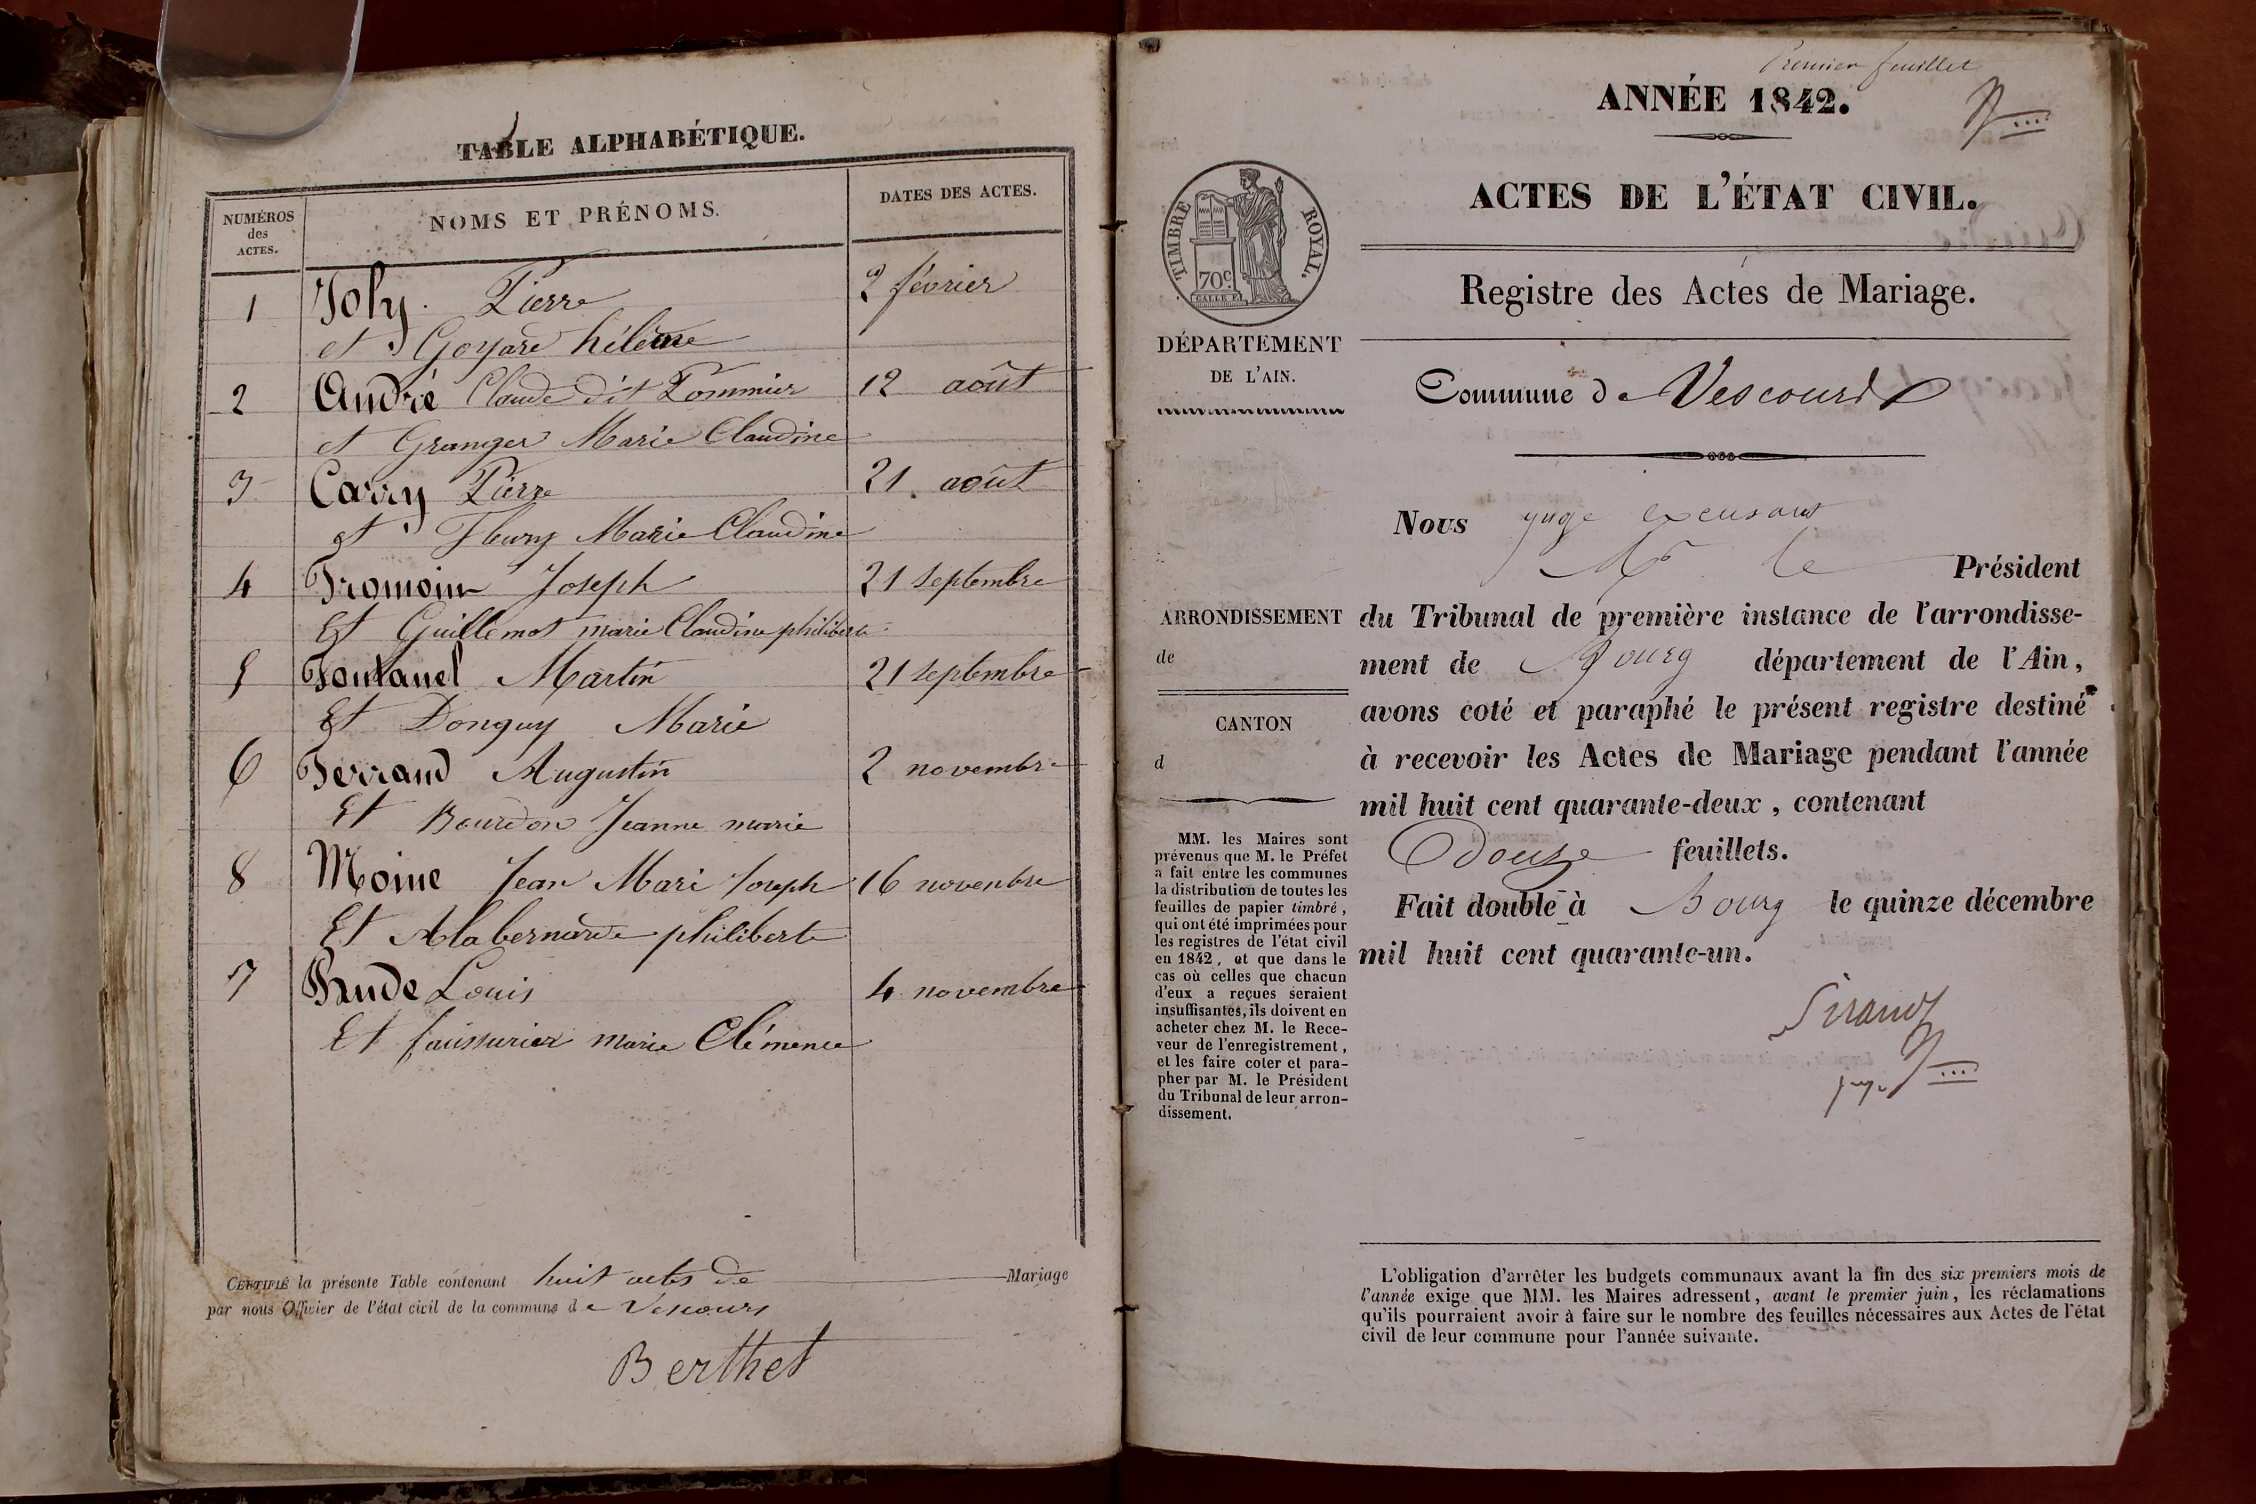 TABLE ALPHABÉTIQUE.
NUMÉROS des ACTES.
NOMS ET PRÉNOMS.
DATES DES ACTES.
1 Joly Pierre 2 février
et Goyard hélène
2 André Claude dit Pommier 12 août
et Granger Marie Claudine
3 Carry Pierre 21 août
et Fleury Marie Claudine
4 Fromoin Joseph 21 septembre
Et Guillemot marie Claudine philiberte
5 Fontanel Martin 21 septembre
Et Donguy Marie
6 Ferrand Augustin 2 novembre
Et Bourdon Jeanne marie
8 Moine Jean Mari Joseph 16 novembre
Et Alabernarde philiberte
7 Louis 4 novembre
Et faissurier marie Clémence
CERTIFIÉ la présente Table contenant huit actes de Mariage
par nous Officier de l'état civil de la commune de Vescours
Berthet
Premier feuillet
ANNÉE 1842.
ACTES DE L'ÉTAT CIVIL.
TIMBRE ROYAL.
70c.
Registre des Actes de Mariage.
DÉPARTEMENT
DE L'AIN.
Commune de Vescours
Nous juge excusant
Mr le Président
ARRONDISSEMENT
de
CANTON
d
du Tribunal de première instance de l'arrondisse-
ment de Bourg département de l'Ain,
avons coté et paraphé le présent registre destiné
à recevoir les Actes de Mariage pendant l'année
mil huit cent quarante-deux, contenant
Douze feuillets.
Fait double à Bourg le quinze décembre
mil huit cent quarante-un.
Sirand
juge
MM. les Maires sont
prévenus que M. le Préfet
a fait entre les communes
la distribution de toutes les
feuilles de papier timbré,
qui ont été imprimées pour
les registres de l'état civil
en 1842, et que dans le
cas où celles que chacun
d'eux a reçues seraient
insuffisantes, ils doivent en
acheter chez M. le Rece-
veur de l'enregistrement,
et les faire coter et para-
pher par M. le Président
du Tribunal de leur arron-
dissement.
L'obligation d'arrêter les budgets communaux avant la fin des six premiers mois de
l'année exige que MM. les Maires adressent, avant le premier juin, les réclamations
qu'ils pourraient avoir à faire sur le nombre des feuilles nécessaires aux Actes de l'état
civil de leur commune pour l'année suivante.